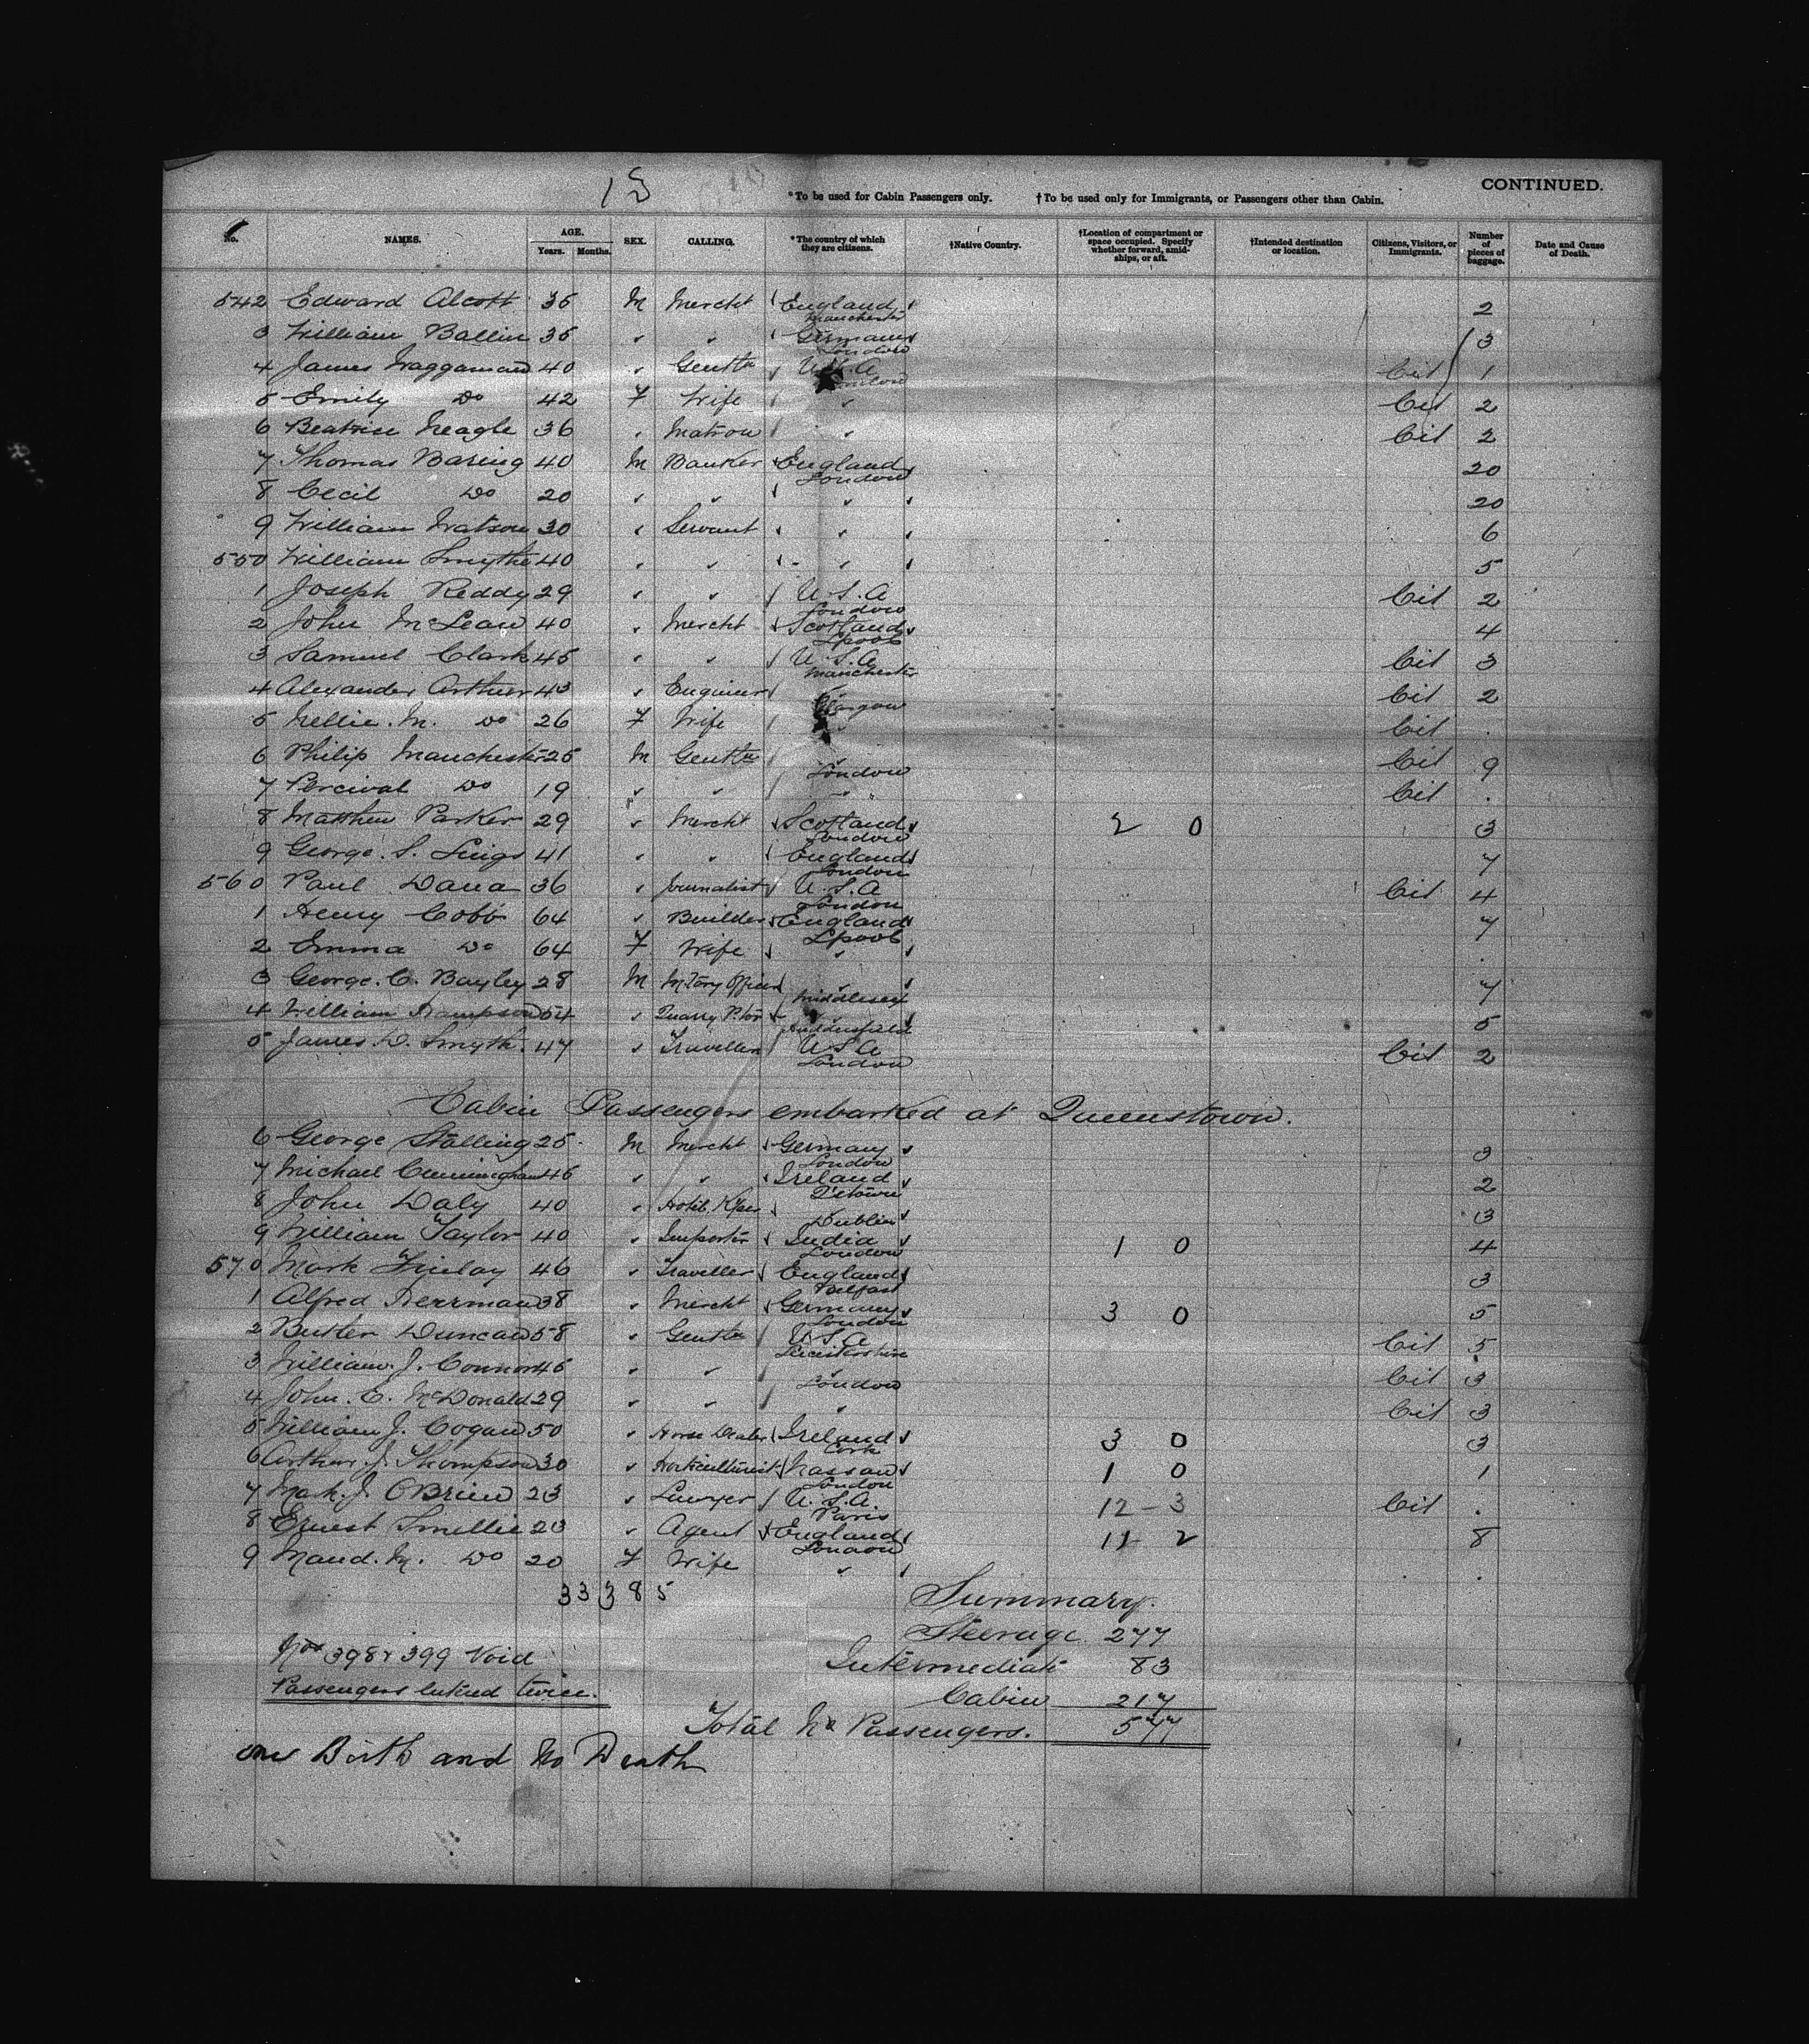 13
*To be used for Cabin Passengers only. †To be used only for Immigrants, or Passengers other than Cabin. CONTINUED.
No. NAMES. AGE. Years. Months. SEX. CALLING. *The country of which they are citizens. †Native Country. †Location of compartment or space occupied. Specify whether forward, amidships, or aft. †Intended destination or location. Citizens, Visitors, or Immigrants. Number of pieces of baggage. Date and Cause of Death.
542 Edward Alcott 35 M Mercht England Manchester 2
3 William Ballin 35 " " Germany London 3
4 James Waggaman 40 " Gentln U.S.A London Cit 1
5 Emily Do 42 F Wife " Cit 2
6 Beatrice Neagle 36 " Matron " Cit 2
7 Thomas Baring 40 M Banker England London 20
8 Cecil Do 20 " " " 20
9 William Watson 30 " Servant " 6
550 William Smythe 40 " " " 5
1 Joseph Reddy 29 " " U.S.A London Cit 2
2 John McLean 40 " Mercht Scotland Lpool 4
3 Samuel Clark 45 " " U.S.A Manchester Cit 3
4 Alexander Arthur 43 " Engineer Glasgow Cit 2
5 Nellie. M. Do 26 F Wife Cit .
6 Philip Manchester 25 M Gentln " London Cit 9
7 Percival Do 19 " " " Cit .
8 Matthew Parker 29 " Mercht Scotland London 2 0 3
9 George. S. 41 " " England London 7
560 Paul Dana 36 " Journalist U.S.A London Cit 4
1 Henry Cobb 64 " Builder England Lpool 7
2 Emma Do 64 F Wife " .
3 George. C. Bayley 28 M Mtary Officer " Middlesex 7
4 William Hampson 54 " Quarry P.tor Huddersfield 5
5 James D. Smyth. 47 " Traveller U.S.A London Cit 2
Cabin Passengers embarked at Queenstown.
6 George Stalling 25 M Mercht Germany London 3
7 Michael Cunningham 46 " " Ireland Q'town 2
8 John Daly 40 " Hotel Kper Dublin 3
9 William Taylor 40 " Importer India London 1 0 4
570 Mark Finlay 46 " Traveller England Belfast 3
1 Alfred Herrman 38 " Mercht Germany London 3 0 5
2 Butler Duncan 58 " Gentln U.S.A Leicestershire Cit 5
3 William. J. Connor 45 " " " London Cit 3
4 John. E. McDonald 29 " " " Cit 3
5 William J. Cogan 50 " Horse Dealer Ireland Cork 3 0 3
6 Arthur. J. Thompson 30 " Horticulturist Nassau London 1 0 1
7 Mark. J. OBrien 23 " Lawyer U.S.A. Paris 12 - 3 Cit .
8 Ernest Smellie 23 " Agent England London 11 2 8
9 Maud. M. Do 20 F Wife " .
33385
Summary.
Steerage 277
Nos 398 & 399 Void
Intermediate 83
Passengers entered twice.
Cabin 217
Total No Passengers. 577
one Birth and No Death